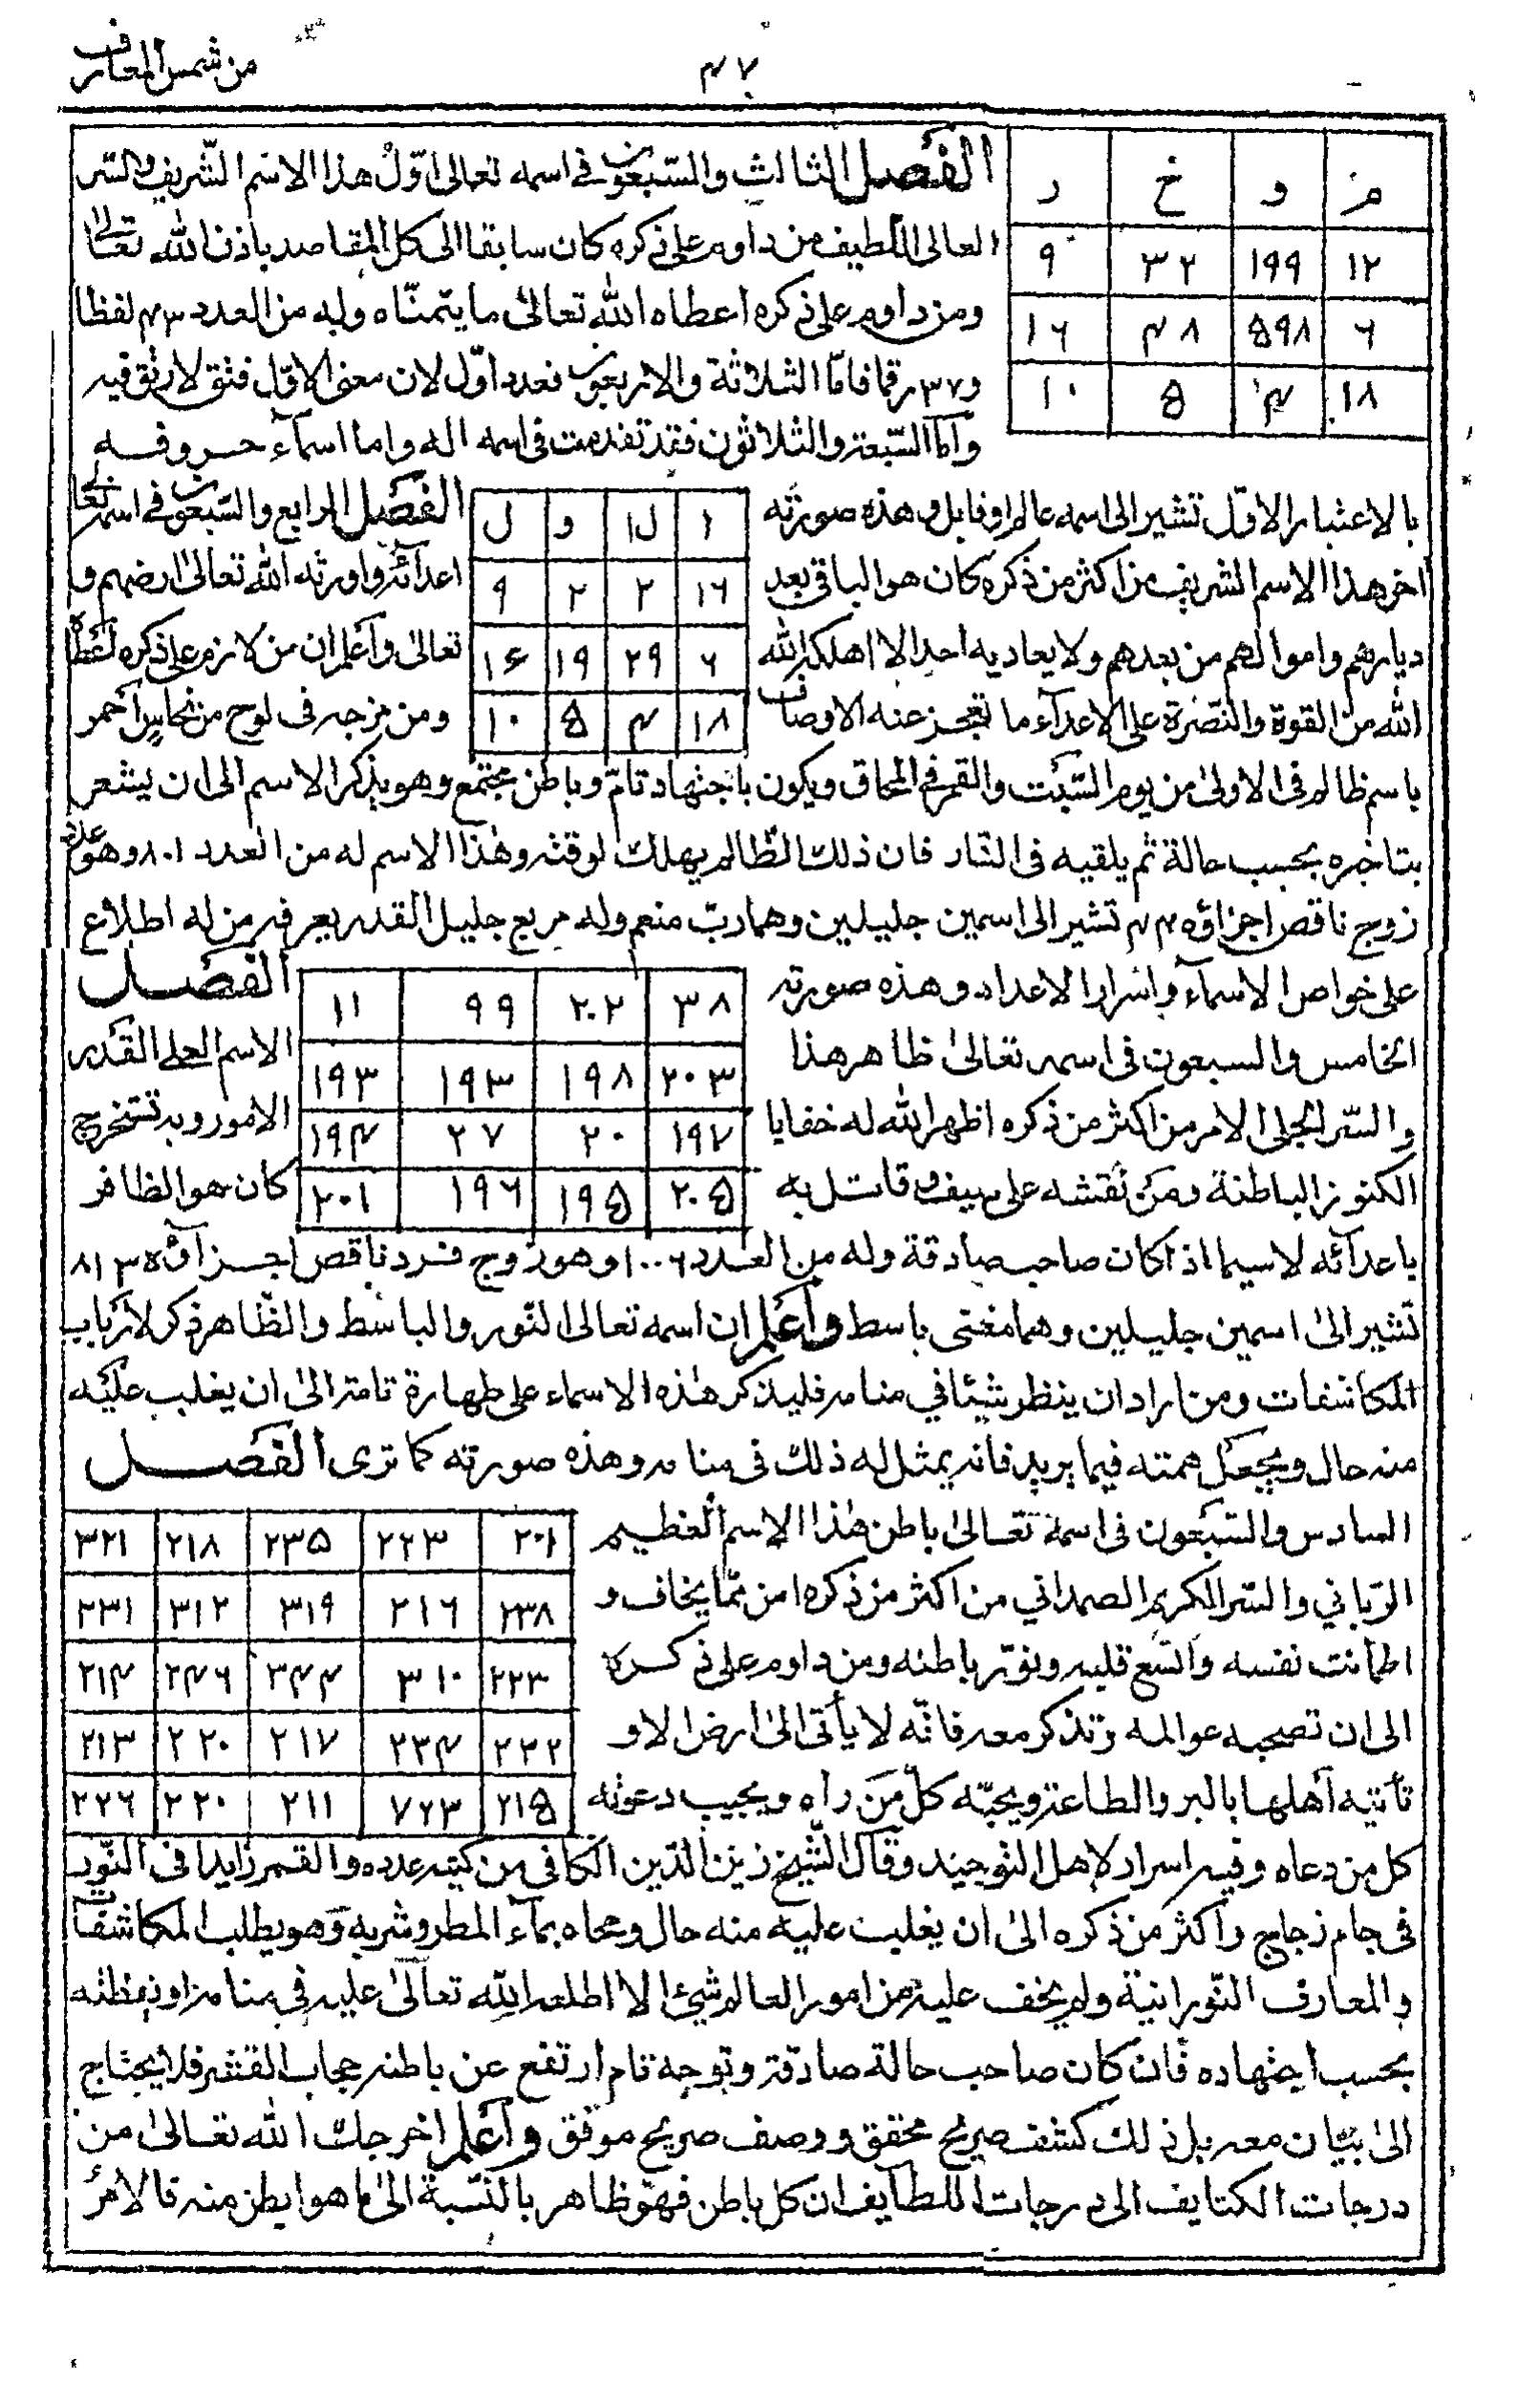 من شمس المعارف
٤٧
م و خ ر
١٢ ١٩٩ ٣٢ ٩
٦ ٥٩٨ ٤٨ ١٦
١٨ ٤ ٥ ١٠
الفصل الثالث والسبعون في اسمه تعالى اوّل هذا الاسم الشريف والسر
العالى اللطيف من داوم على ذكره كان سابقا الى كل المقاصد باذن الله تعالى
ومن داوم على ذكره اعطاه الله تعالى ما يتمنّاه وله من العدد ٤٣ لفظا
و٣٧ رقما فامّا الثلاثة والاربعون فعدد اوّل لان معنى الاوّل فتق لا رتق فيه
وأما السّبعة والثلاثون فقد تقدمت فى اسمه اله واما اسمآء حروفه
بالاعتبار الاوّل تشير الى اسمه عالم او قابل وهذه صورته
ا لا و ل
١٦ ٢ ٢ ٩
٦ ٢٩ ١٩ ١٤
١٨ ٤ ٥ ١٠
الفصل الرابع والسبعون في اسمه تعالى
اخر هذا الاسم الشريف من اكثر من ذكره كان هو الباقى بعد اعدآئه واورثه الله تعالى ارضهم و
ديارهم واموالهم من بعدهم ولا يعاديه احد الا اهلكه الله تعالى وأعلم ان من لازم على ذكره اعطاه
الله من القوة والنصرة على الاعدآء ما تعجز عنه الاوصاف ومن مزجه فى لوح من نحاس أحمر
باسم ظالم فى الاولى من يوم السّبت والقمر فى المحاق ويكون باجتهاد تامّ وباطن مجتمع وهو يذكر الاسم الى ان يشعر
بتاخره بحسب حالة ثم يلقيه فى النّار فان ذلك الظّالم يهلك لوقته وهذا الاسم له من العدد ٨٠١ وهو عدد
زوج ناقص اجزاؤه ٤٤ تشير الى اسمين جليلين وهما ربّ منعم وله مربع جليل القدر يعرفه من له اطلاع
على خواص الاسمآء واسرار الاعداد وهذه صورته
٣٨ ٢٠٢ ٩٩ ١١
٢٠٣ ١٩٨ ١٩٣ ١٩٣
١٩٧ ٢٠ ٢٧ ١٩٤
٢٠٥ ١٩٥ ١٩٦ ٢٠١
الفصل
الخامس والسبعون فى اسمه تعالى ظاهر هذا الاسم العلى القدر
والسّر الجلى الامر من اكثر من ذكره اظهر الله له خفايا الامور وبه تستخرج
الكنوز الباطنة ومن نقشه على سيف وقاتل به كان هو الظافر
باعدآئه لاسيما اذا كان صاحب صادقة وله من العدد ١٠٠٦ وهو زوج فرد ناقص اجزآؤه ٨١٣
تشير الى اسمين جليلين وهما مغنى باسط وأعلم ان اسمه تعالى النّور والباسط والظّاهر ذكر لارباب
المكاشفات ومن اراد ان ينظر شيئا في منامه فليذكر هذه الاسماء على طهارة تامة الى ان يغلب عليه
منه حال ويجعل همته فيما يريد فانه يمثل له ذلك فى منامه وهذه صورته كما ترى الفصل
السادس والسبعون فى اسمه تعالى باطن هذا الاسم العظيم
الرّباني والسر الكريم الصمداني من اكثر من ذكره امن ممّا يخاف و
اطمأنت نفسه واتسع قلبه ونوّر باطنه ومن داوم على ذكره
الى ان تصحبه عوالمه وتذكر معه فانّه لا يأتى الى ارض الا و
تأتيه أهلها بالبر والطاعة ويحبّه كلّ من رأه ويجيب دعوته
٢٠١ ٢٢٣ ٢٣٥ ٢١٨ ٣٢١
٢٣٨ ٢١٦ ٣١٩ ٣١٢ ٢٣١
٢٢٣ ٣١٠ ٣٤٤ ٢٤٦ ٢١٤
٢٢٢ ٢٣٤ ٢١٧ ٢٢٠ ٢١٣
٢١٥ ٧٢٣ ٢١١ ٢٢٠ ٢٢٦
كل من دعاه وفيه اسرار لاهل التوحيد وقال الشّيخ زين الدّين الكافى من كتب عدده والقمر زايدا فى النّور
فى جام زجاج وأكثر من ذكره الى ان يغلب عليه منه حال ومحاه بمآء المطر وشربه وهو يطلب المكاشفات
والمعارف النّورانيّة ولم يخف عليه من امور العالم شئ الا اطلعه الله تعالى عليه في منامه او يقظته
بحسب اجتهاده فأن كان صاحب حالة صادقة وتوجه تام ارتفع عن باطنه حجاب القشر فلا يحتاج
الى بيان معه بل ذلك كشف صريح محقق ووصف صريح موفق وأعلم اخرجك الله تعالى من
درجات الكثايف الى درجات اللطآيف ان كل باطن فهو ظاهر بالنّسبة الى ما هو ابطن منه فالامرُ